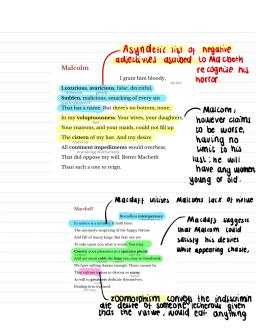 Asyndetic list of negative
adjectives ascribed to Macbeth
recognise his
horror.
Malcolm
I grant him bloody,
Luxurious, avaricious, false, deceitful,
Sudden, malicious, smacking of every sin
That has a name. But there's no bottom, none,
In my voluptuousness. Your wives, your daughters,
Your matrons, and your maids, could not fill up
The cistern of my lust. And my desire
All continent impediments would overbear,
That did oppose my will. Better Macbeth
Than such a one to reign.
Malcolm,
however claims
to be worse,
having no
limit to his
lust: he will
have any women
young or old.
Macduff utilises Malcolms lack of
Macduff
Boundless intemperance
In nature is a tyranny. It hath been
The untimely emptying of the happy throne
And fall of many kings. But fear not yet
To take upon you what is yours. You may
Convey your pleasures in a spacious plenty
And yet seem cold, the time you may so hoodwink.
We have willing dames enough. There cannot be
That vulture in you to devour so many
As will to greatness dedicate themselves,
Finding it so inclined.
Macduff suggests
that Malcolm could
satisfy his desires
while appearing chaste,
zoomorphism convey the indiscrimin
ate desire of someone lecherous given
that the vulture, would eat anything